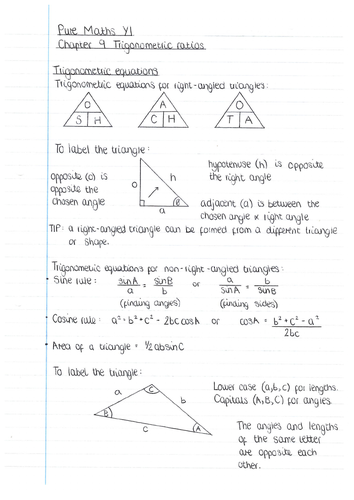 Pure Maths Y1
Chapter 9 Trigonometric ratios
Trigonometric equations
Trigonometric equations for right-angled triangles:
O
S H
A
C H
O
T A
To label the triangle:
opposite (o) is opposite the chosen angle
o
h
θ
a
hypotenuse (h) is opposite
the right angle
adjacent (a) is between the
chosen angle & right angle
TIP: a right-angled triangle can be formed from a different triangle
or shape.
Trigonometric equations for non-right-angled triangles:
• Sine rule: sinA/a = sinB/b or a/sinA = b/sinB
(finding angles) (finding sides)
• Cosine rule: a² = b² + c² - 2bc cosA or cosA = b² + c² - a²/2bc
• Area of a triangle = ½absinC
To label the triangle:
a
C
b
B
c
A
Lower case (a,b,c) for lengths.
Capitals (A,B,C) for angles.
The angles and lengths
of the same letter
are opposite each
other.